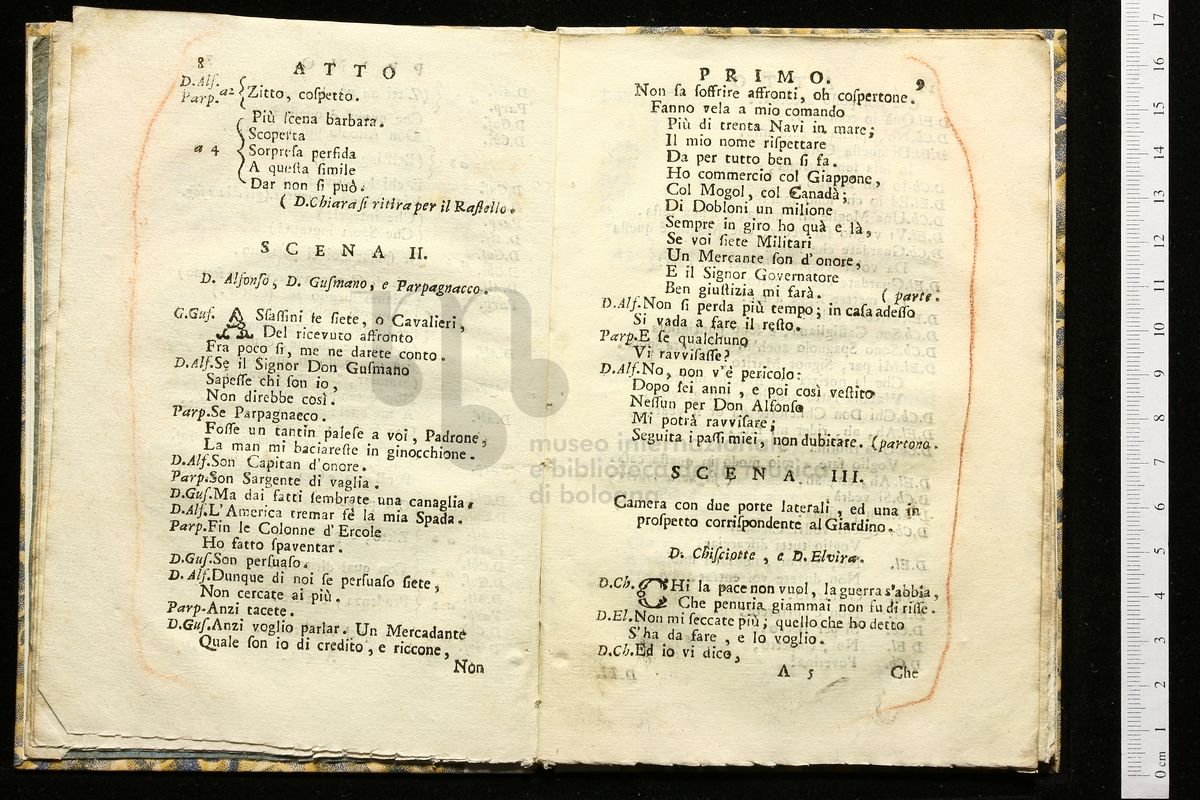 8
ATTO
D.Alf.
Parp. a2 Zitto, cospetto.
Più scena barbara.
Scoperta
a 4 Sorpresa perfida
A questa simile
Dar non si può.
( D.Chiara si ritira per il Rastello.
SCENA II.
D. Alfonso, D. Gusmano, e Parpagnacco.
G.Gus. ASsassini se siete, o Cavalieri,
Del ricevuto affronto
Fra poco sì, me ne darete conto.
D.Alf.Se il Signor Don Gusmano
Sapesse chi son io,
Non direbbe così.
Parp.Se Parpagnacco.
Fosse un tantin palese a voi, Padrone,
La man mi baciareste in ginocchione.
D.Alf.Son Capitan d'onore.
Parp.Son Sargente di vaglia.
D.Gus.Ma dai fatti sembrate una canaglia.
D.Alf.L'America tremar fè la mia Spada.
Parp.Fin le Colonne d'Ercole
Ho fatto spaventar.
D.Gus.Son persuaso.
D. Alf.Dunque di noi se persuaso siete,
Non cercate ai più.
Parp.Anzi tacete.
D.Gus.Anzi voglio parlar. Un Mercadante
Quale son io di credito, e riccone,
Non
PRIMO. 9
Non sa soffrire affronti, oh cospertone.
Fanno vela a mio comando
Più di trenta Navi in mare;
Il mio nome rispettare
Da per tutto ben si fa.
Ho commercio col Giappone,
Col Mogol, col Canadà;
Di Dobloni un milione
Sempre in giro ho quà e là,
Se voi siete Militari
Un Mercante son d'onore,
E il Signor Governatore
Ben giustizia mi farà. ( parte.
D.Alf.Non si perda più tempo; in casa adesso
Si vada a fare il resto.
Parp.E se qualchuno
Vi ravvisasse?
D.Alf.No, non v'è pericolo:
Dopo sei anni, e poi così vestito
Nessun per Don Alfonso
Mi potrà ravvisare;
Seguita i passi miei, non dubitare. (partono.
SCENA III.
Camera con due porte laterali, ed una in
prospetto corrispondente al Giardino.
D. Chisciotte, e D. Elvira.
D.Ch. CHi la pace non vuol, la guerra s'abbia,
Che penuria giammai non fu di risse.
D.El.Non mi seccate più; quello che ho detto
S'ha da fare, e lo voglio.
D.Ch.Ed io vi dico,
A 5 Che
museo internazionale
e biblioteca della musica
di bologna
0 cm 1 2 3 4 5 6 7 8 9 10 11 12 13 14 15 16 17